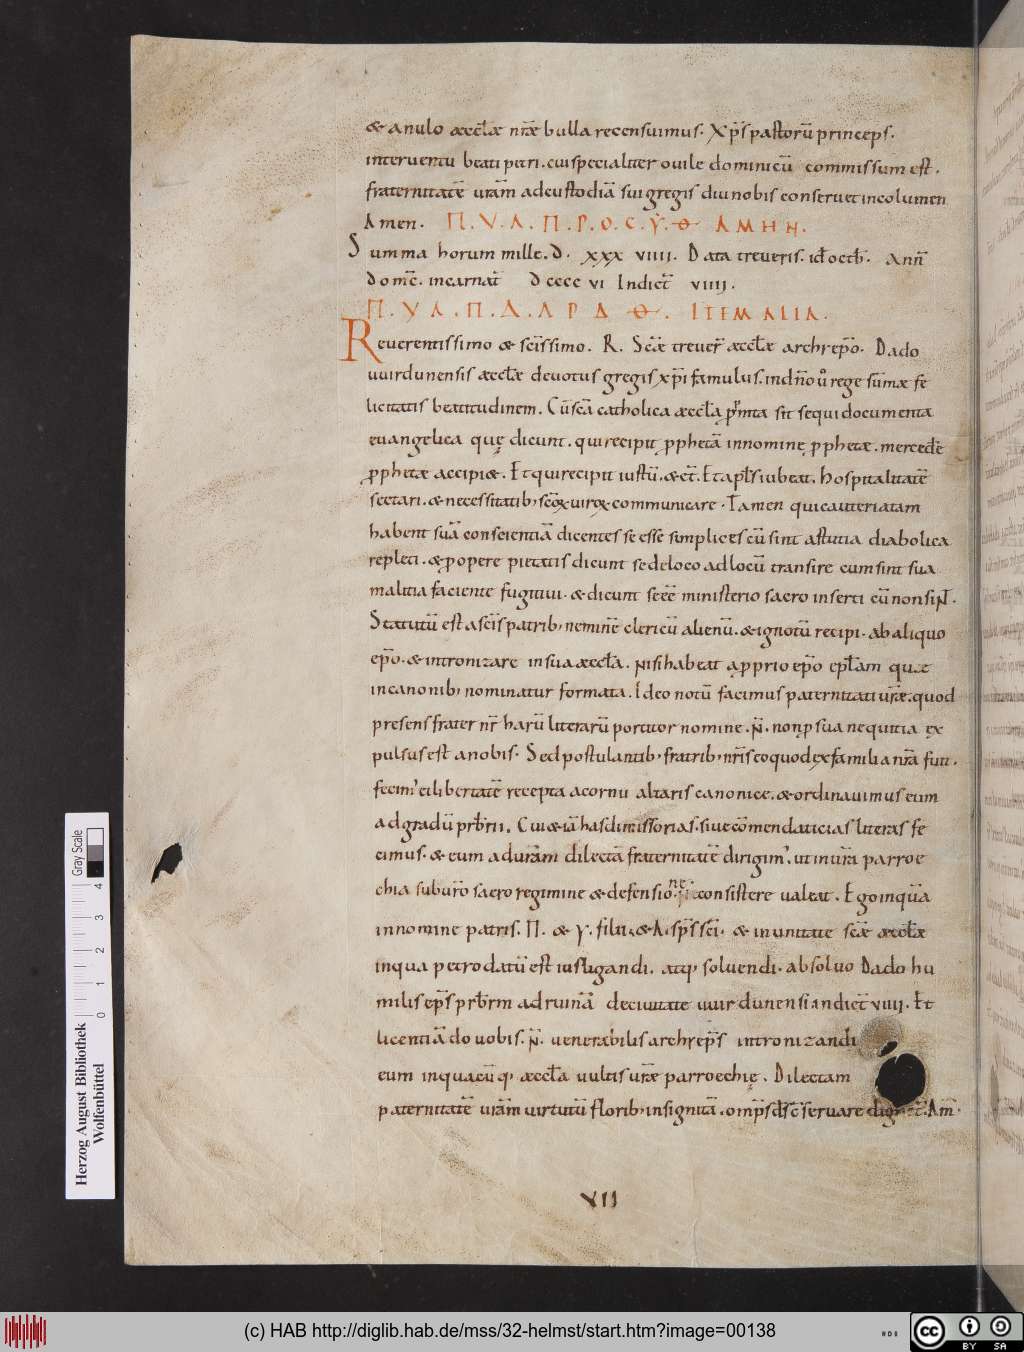 & anulo æccłæ nr̄æ bulla recensuimus. Xp̄s pastorū princeps.
interventu beati petri. cui specialiter ovile dominicū commissum est.
fraternitatē vr̄am ad custodiā sui gregis diu nobis conservet incolumen
Amen. Π. Υ. Α. Π. Ρ. Ο. C. Υ. Θ ΑΜΗΝ.
Summa horum mille. d. xxx viiii. Data treveris. id octb̄. Ann̄
dom̄c. incarnat̄ dcccc vi Indict̄ viiii.
Π. Υ Α. Π. Δ. Α Ρ Δ Θ. ITEM ALIA.
Reverentissimo & scīssimo. R. Scāe trever̄ æccłæ archiep̄o. Dado
uuirdunensis æccłæ devotus gregis xp̄i famulus. in dn̄o
licitatis beatitudinem. catholica æccła sit sequi documenta
evangelica quę dicunt. qui recipit p̱phetā in nomine p̱phetæ. mercedē
p̱phetæ accipi&. Et qui recipit iustū. & cet̄. Et apłs iubeat. hospitalitatē
sectari. & necessitatib; communicare. Tamen qui cauteriatam
habent suā conscientiā dicentes se esse simplices cū sint astutia diabolica
repleti. & p̱ opere pietatis dicunt se de loco ad locū transire cum sint sua
malitia faciente fugitivi. & dicunt se ministerio sacro inserti cū non sint.
Statutū est a scīs patrib; neminē clericū alienū. & ignotū recipi. ab aliquo
ep̄o. & intronizare in sua æccła. Nisi habeat a p̱prio ep̄o epłam quæ
in canonib; nominatur formata. Ideo notū facimus paternitati vr̄æ. quod
presens frater nr̄ harū literarū portitor nomine. N̄. non p̱ sua nequitia ex
pulsus est a nobis. Sed postulantib; fratrib; nr̄is eo quod ex familia nr̄a fuit.
fecim' ei libertatē recepta a cornu altaris canonice. & ordinavimus eum
ad gradū prb̄rii. Cui & iā has dimissorias. sive cōmendaticias literas fe
cimus. & eum ad vr̄am dilectā fraternitatē dirigim'. ut in vr̄a parroe
chia sub vr̄o sacro regimine & defensione consistere valeat. Ego in quā
in nomine patris. Π. & Υ. filii. & Α. sp̄s scī. & in unitate scāe æccłæ
in qua petro datū est ius ligandi. atq; solvendi. absolvo Dado hu
milis ep̄s prb̄rm ad civitate uuirdunensi indict̄ viiii. Et
licentiā do vobis. N̄. venerabilis archiep̄s intronizandi
eum in quacūq; æccła vultis vr̄æ parroechię. Dilectam
paternitatē vr̄am virtutū florib; insignitā. omp̄s ds̄ cōservare Am̄.
VII
Gray Scale
0 1 2 3 4
Herzog August Bibliothek
Wolfenbüttel
(c) HAB http://diglib.hab.de/mss/32-helmst/start.htm?image=00138
cc BY SA